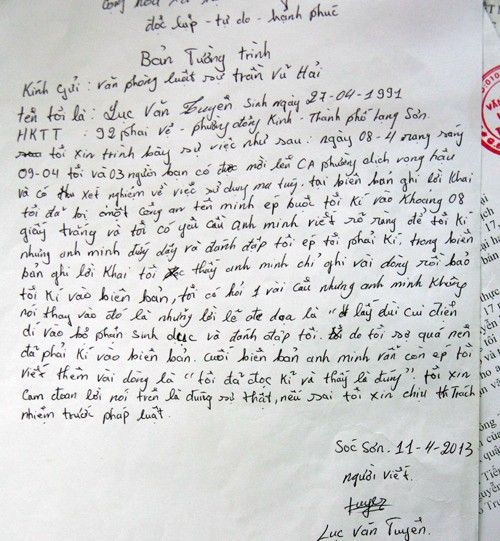 độc lập - tự do - hạnh phúc
Bản Tường trình
Kính gửi : văn phòng luật sự trần vũ Hải
tên tôi là : Lục Văn Tuyển sinh ngày 27-04-1991
HKTT : 92 phai vệ - phường đông Kinh - Thành phố Lạng Sơn.
tôi xin trình bày sự việc như sau : ngày 08-4 rạng sáng
09-04 tôi và 03 người bạn có được mời lên CA phường dịch vọng hậu
và có thu xét nghiệm về việc sử dụng ma tuý. tại biên bản ghi lời Khai
tôi đã bị công an tên minh ép buộc tôi Kí vào Khoảng 08
giấy trắng và tôi có yêu cầu anh minh viết rõ ràng để tôi Kí
nhưng anh minh đứng dậy và đánh đập tôi ép tôi phải Kí, trong biên
bản ghi lời Khai tôi thấy anh minh chỉ ghi vài dòng rồi bảo
tôi Kí vào biên bản, tôi có hỏi 1 vài câu nhưng anh minh Không
nói thay vào đó là những lời lẽ đe dọa là "sẽ lấy dùi cui điện
dí vào bộ phận sinh dục và đánh đập tôi. do tôi sợ quá nên
đã phải Kí vào biên bản. cuối biên bản anh minh vẫn còn ép tôi
viết thêm vài dòng là "tôi đã đọc Kĩ và thấy là đúng", tôi xin
Cam đoan lời nói trên là đúng sự thật, nếu sai tôi xin chịu Trách
nhiệm trước pháp luật.
Sóc Sơn. 11-4-2013
người viết.
Tuyển
Lục Văn Tuyển.